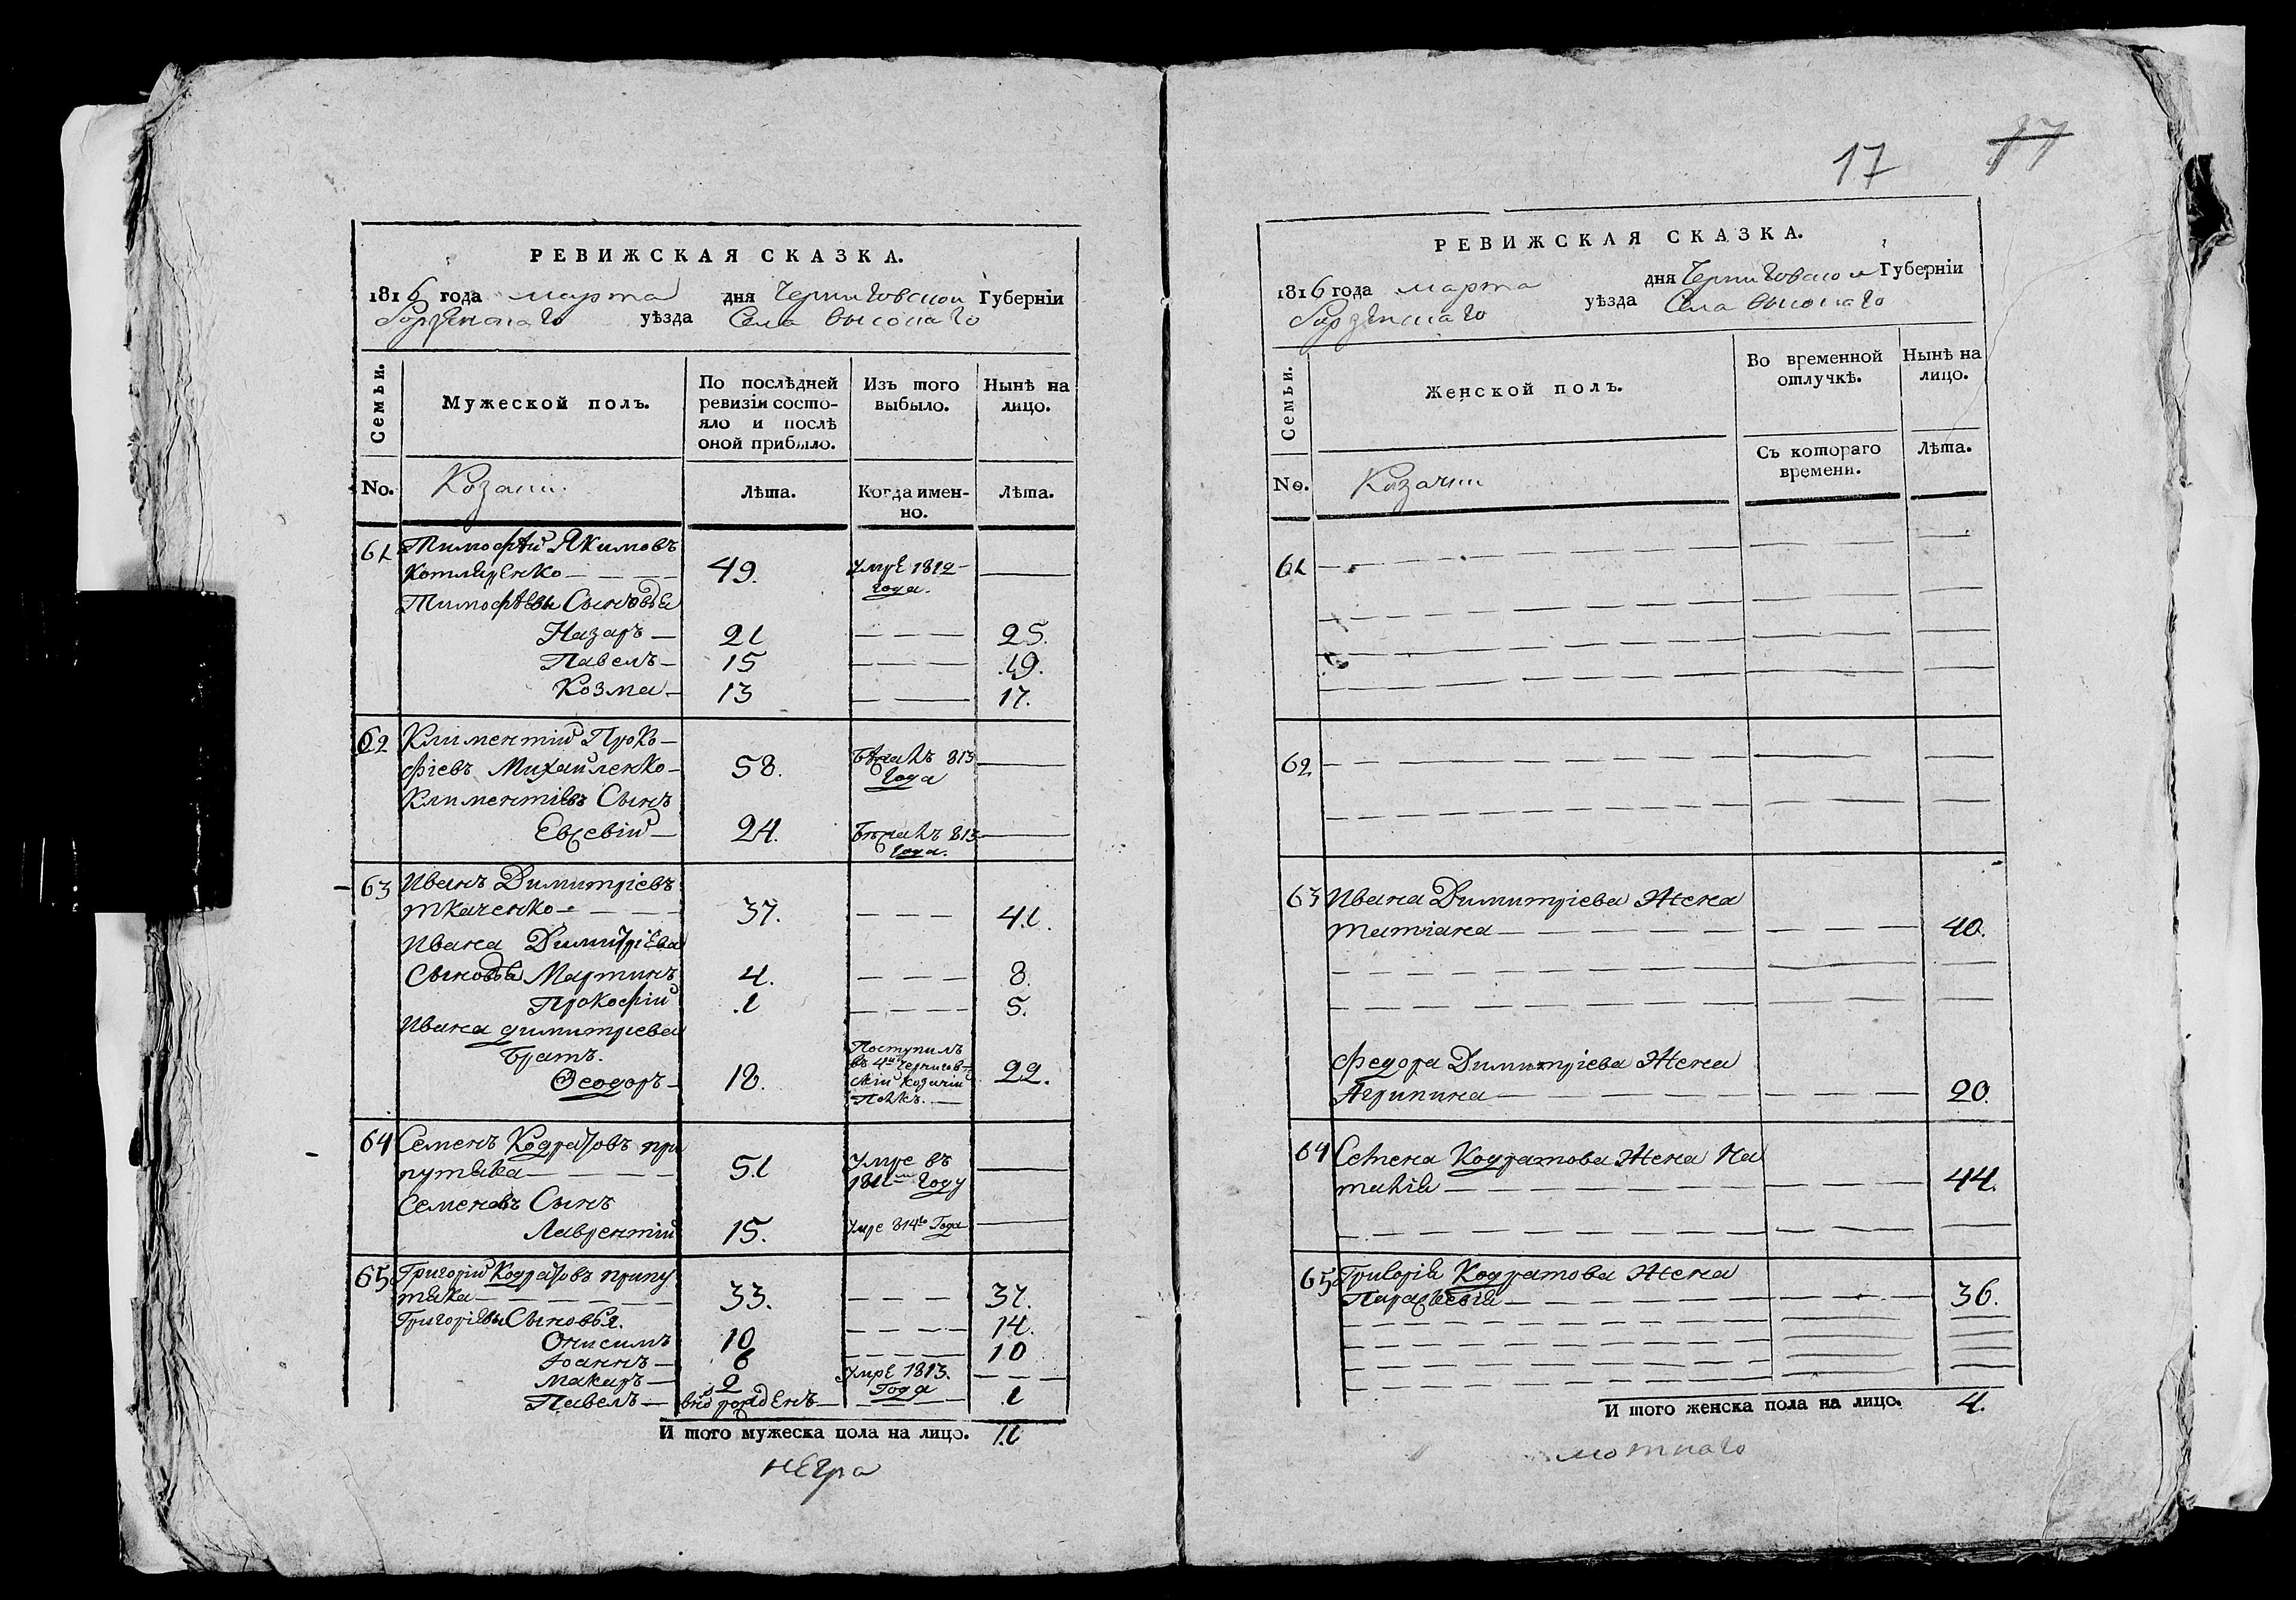 17 17
РЕВИЖСКАЯ СКАЗКА.
1816 года марта дня Черниговской Губернiи
уѣзда Села высокаго
Семьи.
Мужеской полъ.
По послѣдней
ревизiи состо-
яло и послѣ
оной прибыло.
Изъ того
выбыло.
Нынѣ на
лицо.
No.
Козаки
Лѣта.
Когда имен-
но.
Лѣта.
61 Тимофѣй Якимовъ
Котляренко 49. Умре 1812
года.
Тимофѣевы Сыновья
Назаръ 21 25.
Павелъ 15 19.
Козма 13 17.
62 Климентiй Проко-
фiевъ Михайленко 58. Бѣжалъ 813
года
Климентiевъ Сынъ
Евсевiй 24. Бѣжалъ 813
года.
63 Иванъ Димитрiевъ
Ткаченко 37. 41.
Ивана Димитрiева
Сыновья Мартинъ 4. 8.
Прокофiй 1 5.
Ивана Димитрiева
братъ.
Ѳеодоръ 18. Поступилъ
въ 4й Чернигов-
скiй козачiй
Полкъ. 22.
64 Семенъ Кодратовъ при
путяка 51 Умре въ
181 году
Семеновъ Сынъ
Лаврентiй 15. Умре 814го Года
65 Григорiй Кодратовъ припу
тяка 33. 37.
Григорiевы Сыновья.
Онисимъ 10 14.
Iоаннъ 6 10
Макаръ 2 Умре 1813.
Года
Павелъ вновь рожденъ 1
И того мужеска пола на лицо. 11
негра
РЕВИЖСКАЯ СКАЗКА.
1816 года марта дня Черниговской Губернiи
уѣзда Села высокаго
Семьи.
Женской полъ.
Во временной
отлучкѣ.
Нынѣ на
лицо.
No.
Козачки
Съ котораго
времени.
Лѣта.
61
62
63 Ивана Димитрiева Жена
Татiана 40.
Федора Димитрiева Жена
Агрипина 20.
64 Семена Кодратова Жена На
талiя 44.
65 Григорiя Кодратова Жена
Параскевiя 36.
И того женска пола на лицо. 4.
мотнаго